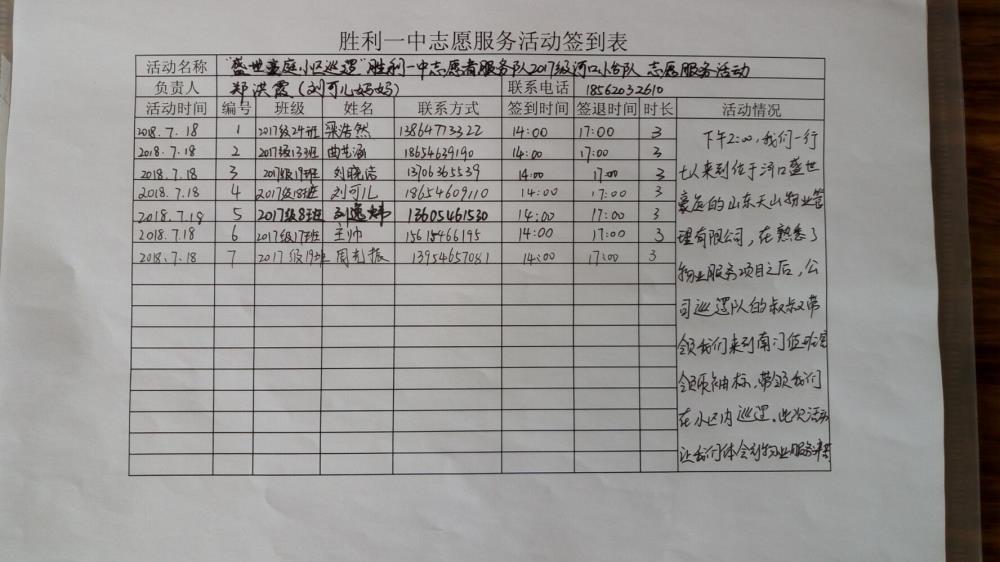 胜利一中志愿服务活动签到表
活动名称 "盛世豪庭小区巡逻"胜利一中志愿者服务队2017级河口小分队 志愿服务活动
负责人 郑洪霞(刘可儿妈妈) 联系电话 18562032610
活动时间 编号 班级 姓名 联系方式 签到时间 签退时间 时长 活动情况
2018.7.18 1 2017级24班 渠浩然 13864773322 14:00 17:00 3
2018.7.18 2 2017级13班 曲艺涵 18654639190 14:00 17:00 3
2018.7.18 3 2017级19班 刘晓洁 13706365539 14:00 17:00 3
2018.7.18 4 2017级18班 刘可儿 18654609110 14:00 17:00 3
2018.7.18 5 2017级8班 刘逸炜 13605461530 14:00 17:00 3
2018.7.18 6 2017级17班 王帅 15615466195 14:00 17:00 3
2018.7.18 7 2017级19班 周光振 13954657081 14:00 17:00 3
下午2:00,我们一行
七人来到位于河口盛世
豪庭的山东天山物业管
理有限公司,在熟悉了
物业服务项目之后,公
司巡逻队的叔叔带
领我们来到南门值班室
领取袖标,带领我们
在小区内巡逻。此次活动
让我们体会到物业服务